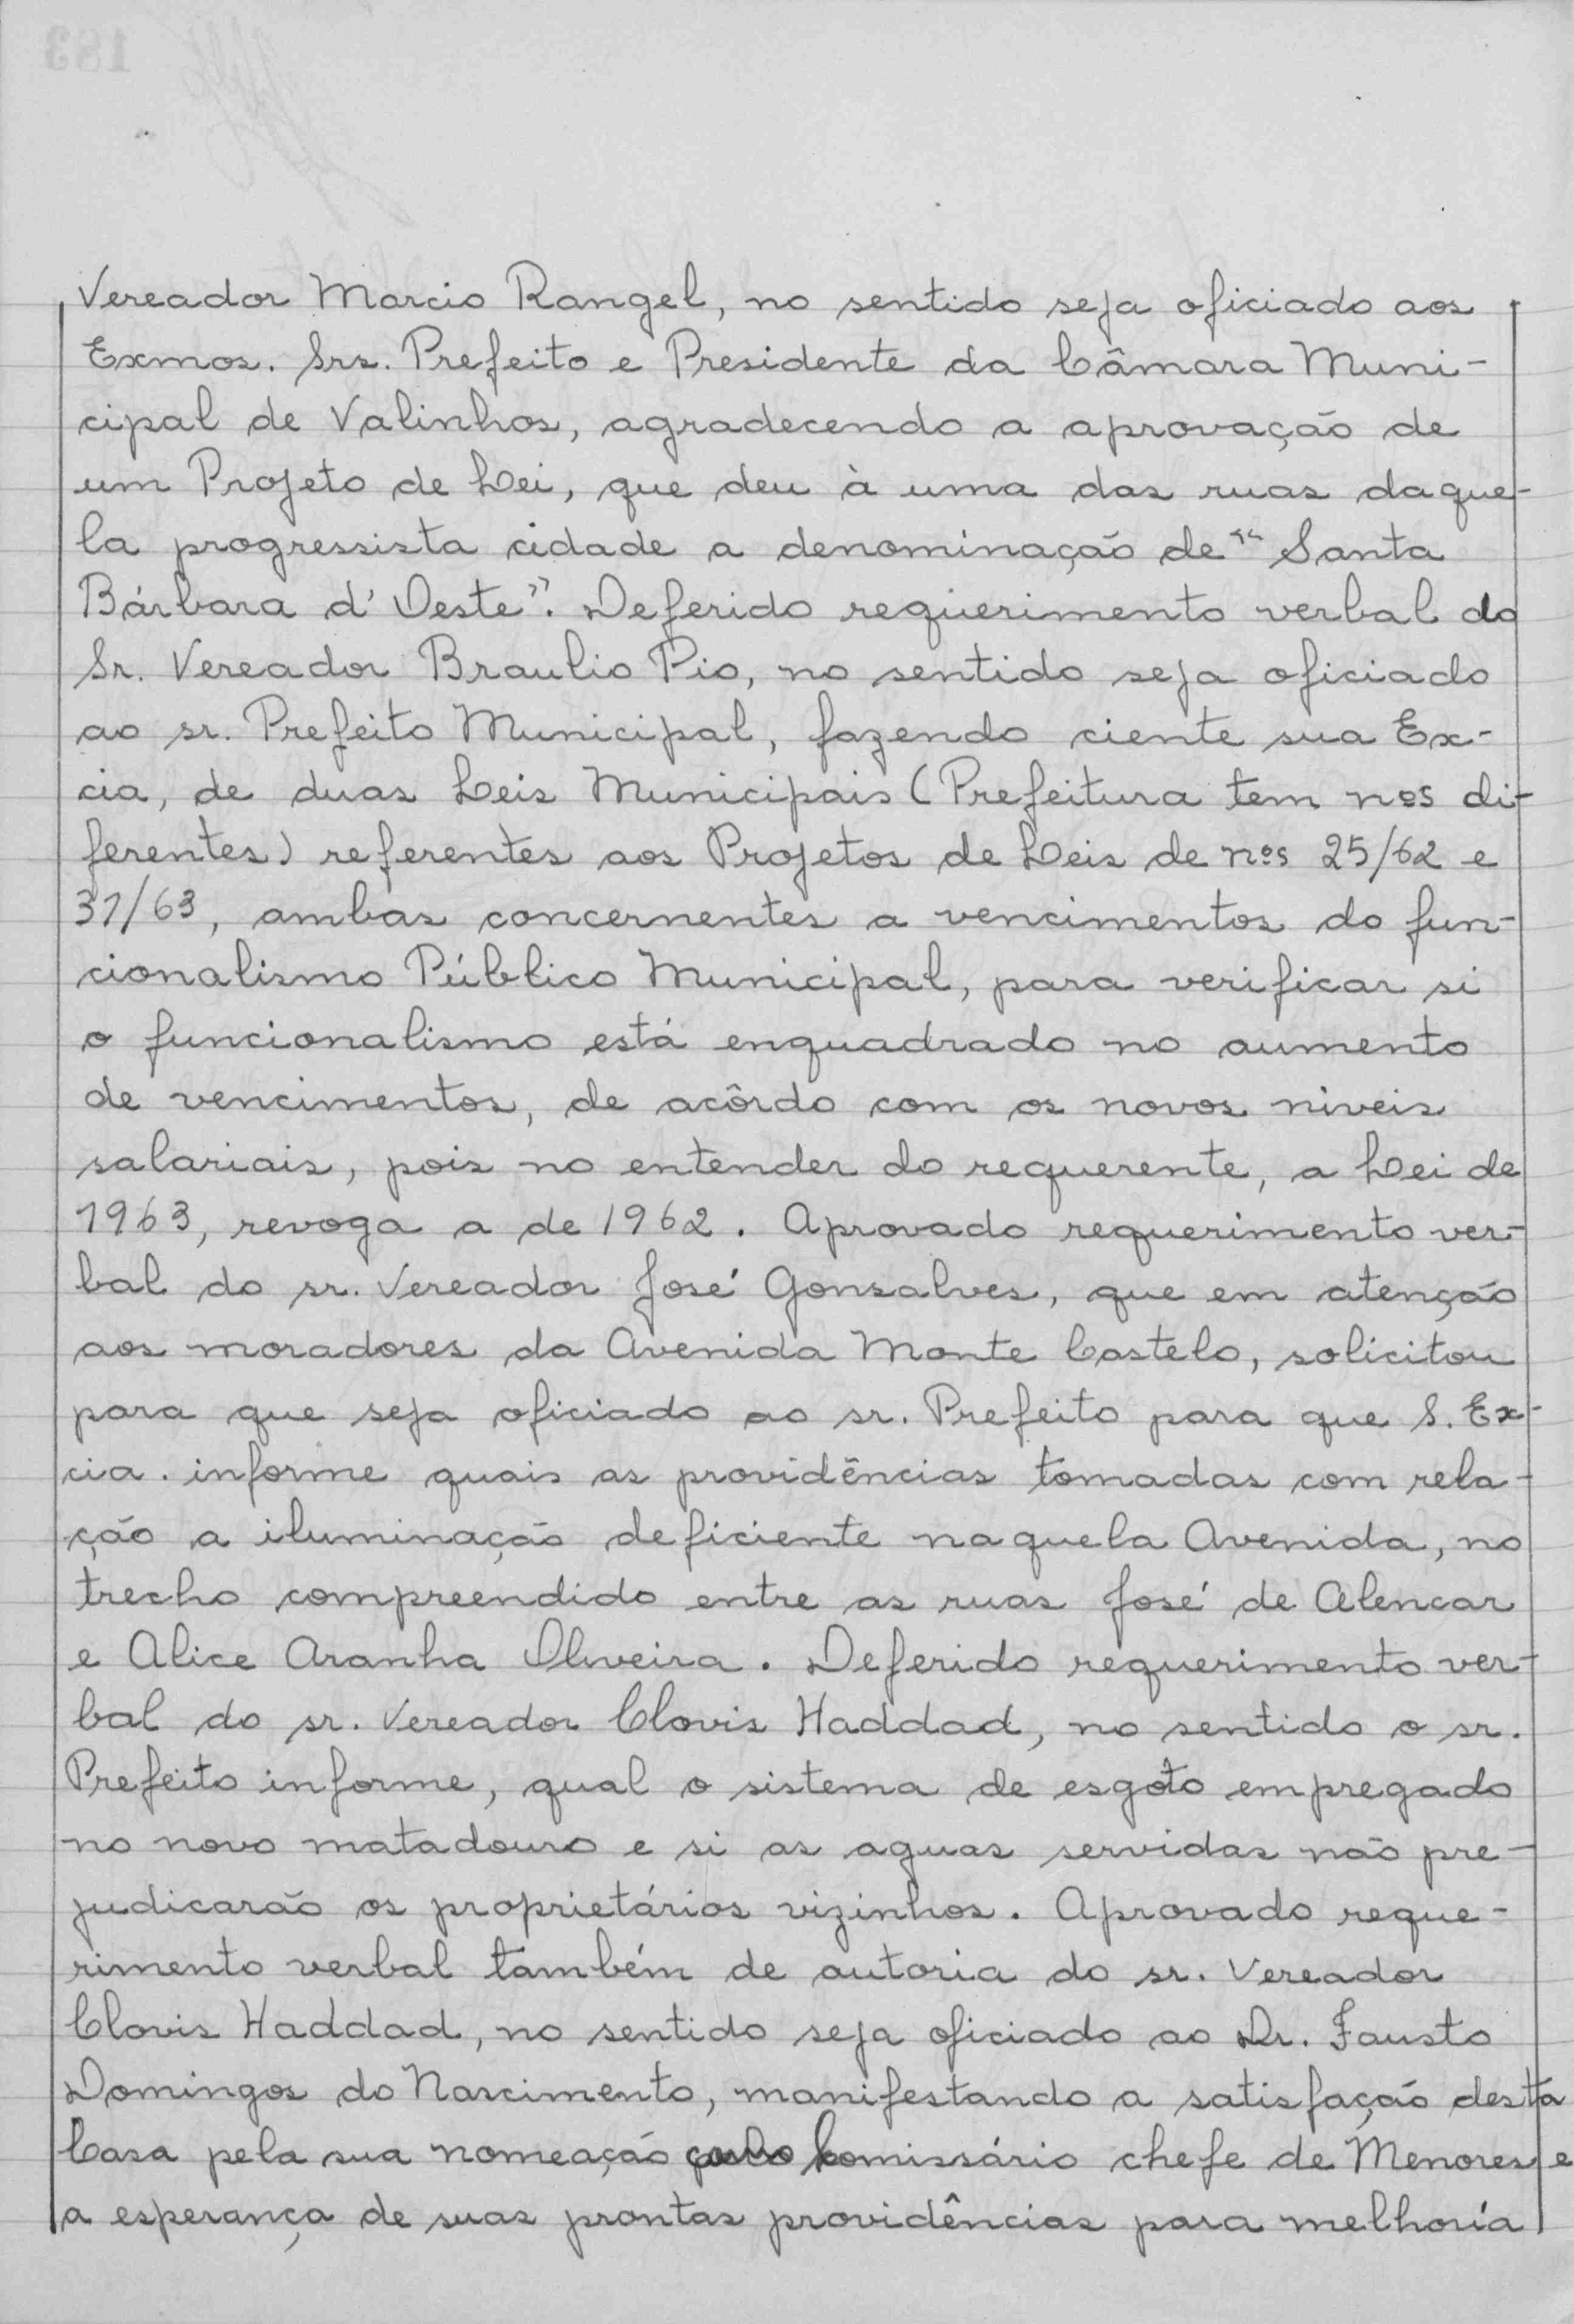 Vereador Marcio Rangel, no sentido seja oficiado aos
Exmos. Srs. Prefeito e Presidente da Câmara Muni-
cipal de Valinhos, agradecendo a aprovação de
um Projeto de Lei, que deu à uma das ruas daque-
la progressista cidade a denominação de "Santa
Bárbara d'Oeste". Deferido requerimento verbal do
Sr. Vereador Braulio Pio, no sentido seja oficiado
ao sr. Prefeito Municipal, fazendo ciente sua Ex-
cia, de duas Leis Municipais (Prefeitura tem nºs di-
ferentes) referentes aos Projetos de Leis de nºs 25/62 e
31/63, ambas concernentes a vencimentos do fun-
cionalismo Público Municipal, para verificar si
o funcionalismo está enquadrado no aumento
de vencimentos, de acôrdo com os novos niveis
salariais, pois no entender do requerente, a Lei de
1963, revoga a de 1962. Aprovado requerimento ver-
bal do sr. Vereador José Gonsalves, que em atenção
aos moradores da Avenida Monte Castelo, solicitou
para que seja oficiado ao sr. Prefeito para que S. Ex-
cia. informe quais as providências tomadas com rela-
ção a iluminação deficiente naquela Avenida, no
trecho compreendido entre as ruas José de Alencar
e Alice Aranha Oliveira. Deferido requerimento ver-
bal do sr. Vereador Clovis Haddad, no sentido o sr.
Prefeito informe, qual o sistema de esgoto empregado
no novo matadouro e si as aguas servidas não pre-
judicarão os proprietários vizinhos. Aprovado reque-
rimento verbal também de autoria do sr. Vereador
Clovis Haddad, no sentido seja oficiado ao Dr. Fausto
Domingos do Nascimento, manifestando a satisfação desta
Casa pela sua nomeação Comissário chefe de Menores e
a esperança de suas prontas providências para melhoria